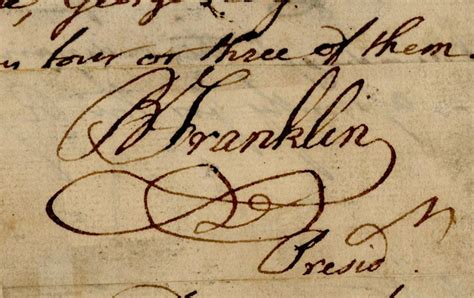 George
four or three of them.
B Franklin
Presid